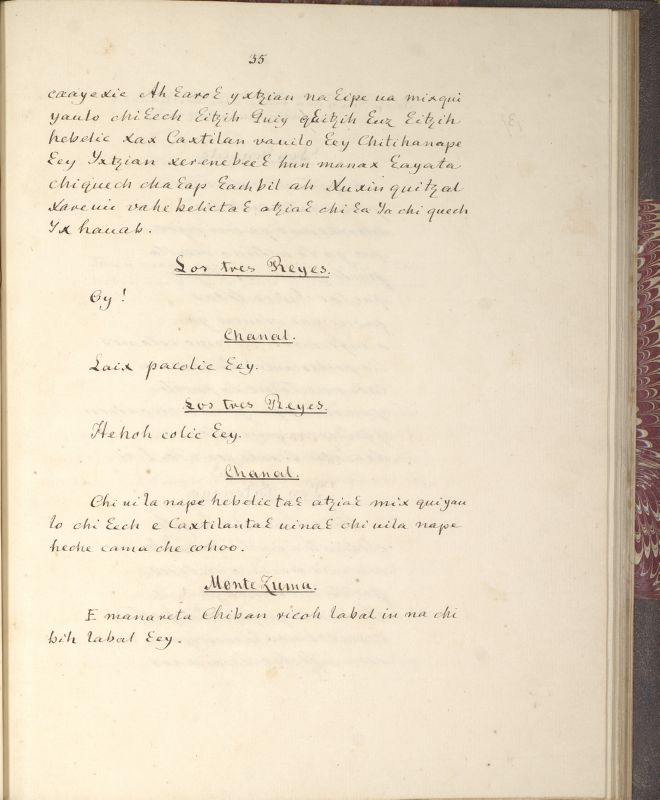 35
caayexic Ah Ɛaroɛ yxtzian na Ɛipe ua mixqui
yaulo chi Ɛech Ɛitzih Quiy qƐitzih Ɛuz Ɛitzih
hebelic xax Caxtilan vauilo Ɛey Chitihanape
Ɛey Yxtzian xerenebecɛ hun manax Ɛayata
chiquech chaƐap Ɛachbil ah Xuxin quitzal
Xarenic vahe belictaɛ atziaɛ chi Ɛa Ya chi quech
Yx hauab.
Los tres Reyes.
Oy!
Chanal.
Laix pacolic Ɛey.
Los tres Reyes.
Hehoh colic Ɛey.
Chanal.
Chi uila nape hebelictaɛ atziaɛ mix quiyau
lo chi Ɛech e Caxtilantaɛ uinaɛ chi uila nape
heche cama che cohoo.
MonteZuma.
E manareta Chiban ricoh labal in na chi
bih labal Ɛey.